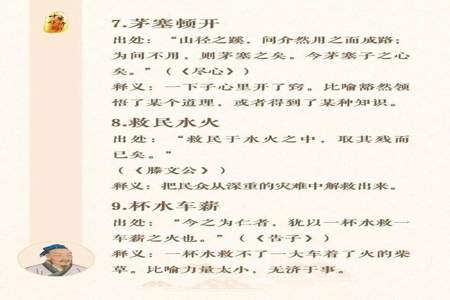 7.茅塞顿开
出处：“山径之蹊，间介然用之而成路；
为间不用，则茅塞之矣。今茅塞子之心
矣。”（《尽心》）
释义：一下子心里开了窍。比喻豁然领
悟了某个道理，或者得到了某种知识。
8.救民水火
出处：“救民于水火之中，取其残而
已矣。”
（《滕文公》）
释义：把民众从深重的灾难中解救出来。
9.杯水车薪
出处：“今之为仁者，犹以一杯水救一
车薪之火也。”（《告子》）
释义：一杯水救不了一大车着了火的柴
草。比喻力量太小，无济于事。